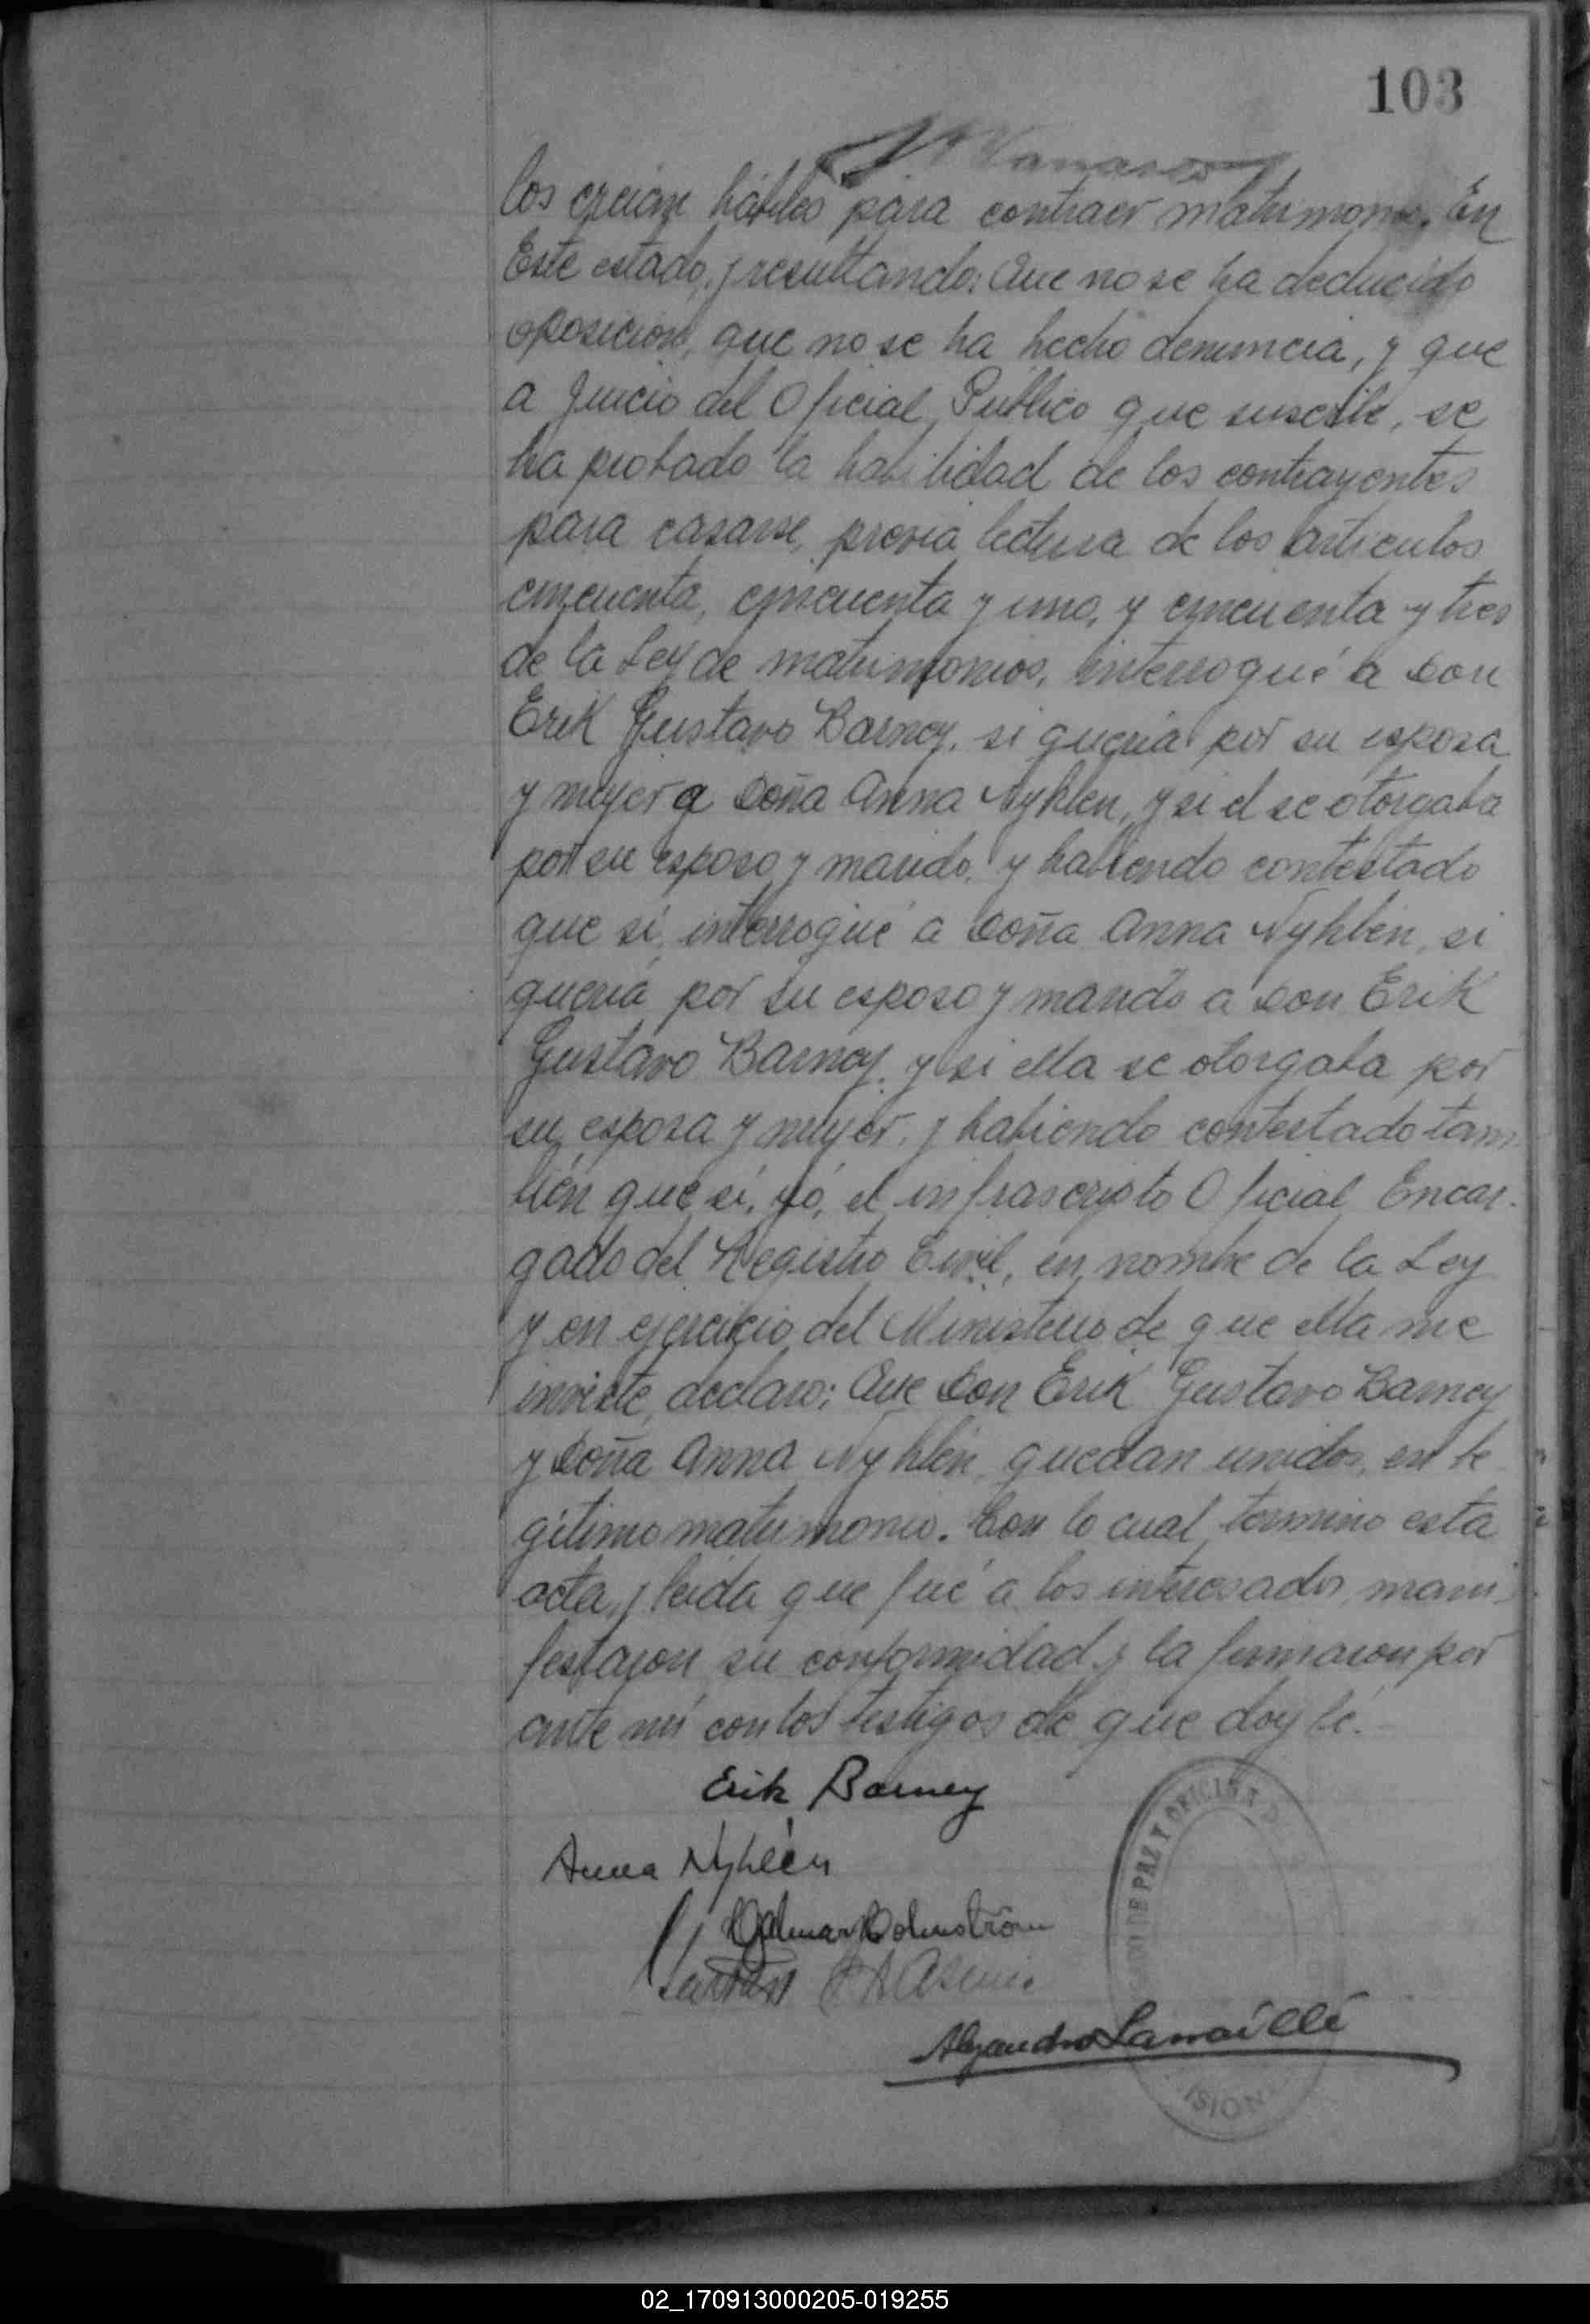 103
los creian hábiles para contraer matrimonio. En
Este estado, y resultando: Que no se ha deducido
oposición, que no se ha hecho denuncia, y que
a Juicio del Oficial Público que suscribe, se
ha probado la habilidad de los contrayentes
para casarse, previa lectura de los artículos
cincuenta, cincuenta y uno, y cincuenta y tres
de la Ley de matrimonios, interrogué a Don
Erik Gustavo Barney, si quería por su esposa
y mujer a Doña Anna Nyhlen, y si el se otorgaba
por su esposo y marido, y habiendo contestado
que sí, interrogué a Doña Anna Nyhlén, si
quería por su esposo y marido a Don Erik
Gustavo Barney, y si ella se otorgaba por
su esposa y mujer, y habiendo contestado tam
bién que sí, yó, el infrascripto Oficial Encar-
gado del Registro Civil, en nombre de la Ley
y en ejercicio del Ministerio de que ella me
inviste, declaro: Que Don Erik Gustavo Barney
y Doña Anna Nyhlén, quedan unidos, en le
gítimo matrimonio. Con lo cual termino esta
acta, y leída que fué a los interesados, mani-
festaron su conformidad y la firmaron por
ante mí con los testigos de que doy fé.
Erik Barney
Anna Nyhlén
Hjalmar Holmström
Alejandro Lamaillé
DE PAZ Y OFICINA D
ISION
02_170913000205-019255